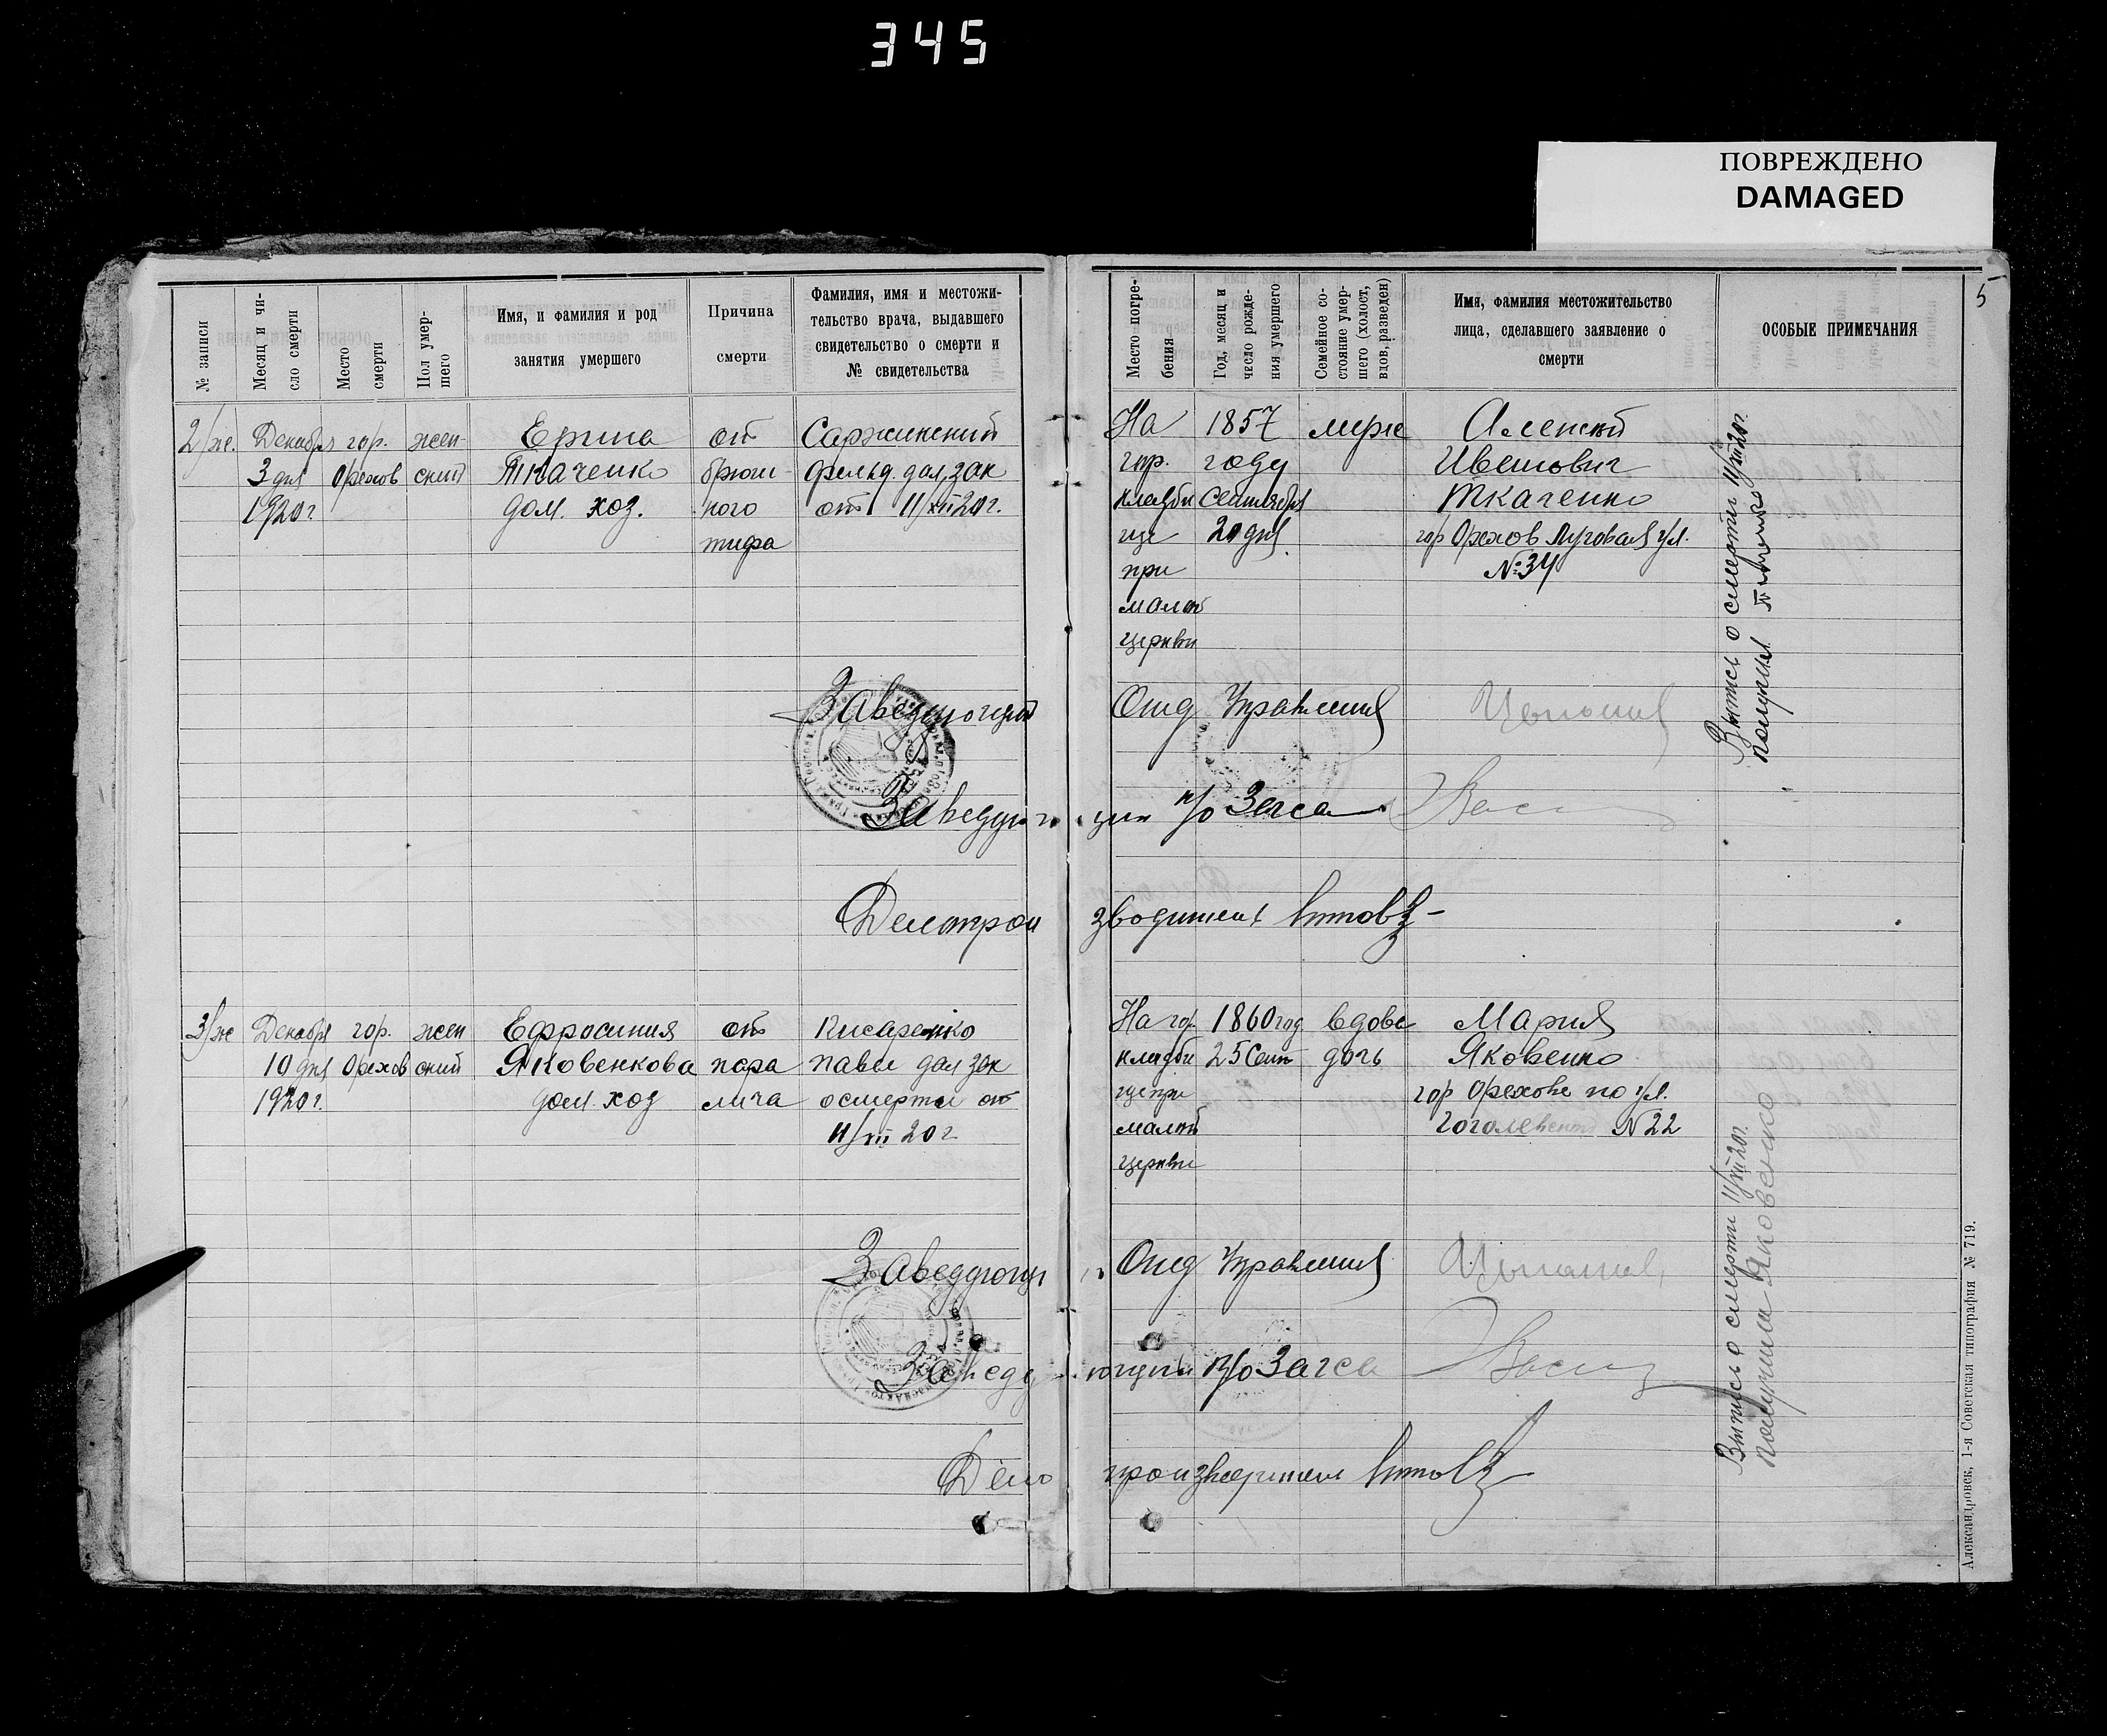 345
ПОВРЕЖДЕНО
DAMAGED
5
№ записи
Месяц и чи-
сло смерти
Место
смерти
Пол умер-
шего
Имя, и фамилия и род
занятия умершего
Причина
смерти
Фамилия, имя и местожи-
тельство врача, выдавшего
свидетельство о смерти и
№ свидетельства
Место погре-
бения
Год, месяц и
число рожде-
ния умершего
Семейное со-
стояние умер-
шего (холост,
вдов, разведен)
Имя, фамилия местожительство
лица, сделавшего заявление о
смерти
ОСОБЫЕ ПРИМЕЧАНИЯ
2/же.
Декабря
3 дня
1920 г.
гор.
Орехов
жен-
ский
Ткаченко
дом. хоз.
от
брюш-
ного
тифа
Саржинский
фельд. дал зак
от 11/XII 20 г.
На
гор.
кладби
ще
при
малой
церкви
1857
году
Сентября
20 дня
Алексей
Иванович
Ткаченко
гор Орехов Луговая ул.
№ 34
Выпись о смерти 11/XII 20 г.
получил
Заведующий
Отд Управления
Заведующий п/о Загса
Делопроизводитель
3/же
Декабря
10 дня
1920 г.
гор.
Орехов
жен
ский
Ефросиния
Яковенкова
дом. хоз
от
пара
лича
Писаренко
Павел дал зак
о смерти от
11/XII 20 г
На гор.
кладби
ще при
малой
церкви
1860 год
25 Сент
вдова
дочь
Мария
Яковенко
гор Орехове по ул.
Гоголевской № 22
Выпись о смерти 11/XII 20 г.
получила Яковенко
Заведующий
Отд Управления
Заведующий п/о Загса
Делопроизводитель
Александровск, 1-я Советская типография № 719.